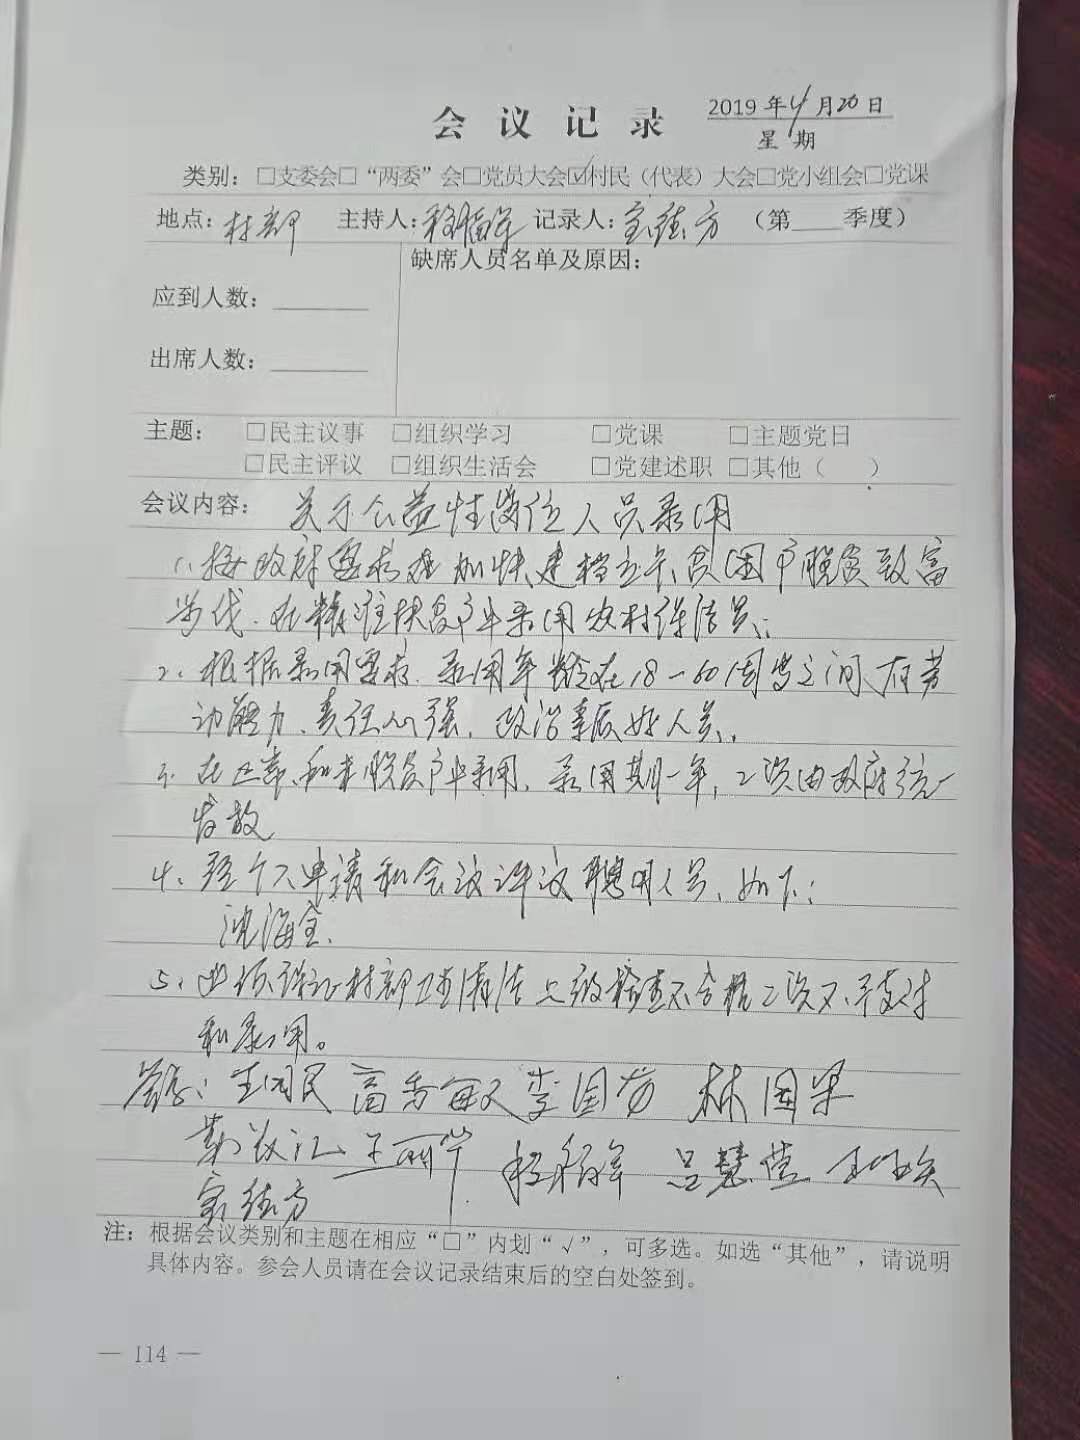 会议记录
2019年4月20日
星期
类别：□支委会□“两委”会□党员大会☑村民（代表）大会□党小组会□党课
地点：村部 主持人：程福军 记录人：方（第____季度）
缺席人员名单及原因：
应到人数：______
出席人数：______
主题：□民主议事 □组织学习 □党课 □主题党日
□民主评议 □组织生活会 □党建述职 □其他（ ）
会议内容：关于公益性岗位人员录用
1、按政府要求加快建档立卡贫困户脱贫致富
步伐、在精准扶贫户中录用农村保洁员；
2、根据录用要求、录用年龄在18-60周岁之间、有劳
动能力、责任心强、政治素质好人员。
3、在正常和未脱贫户中录用，录用期一年，工资由政府统一
发放
4、经个人申请和会议评议聘用人员、如下：
沈海全、
5、必须保证村部卫生清洁上级检查不合格工资不予支付
和录用。
签字：民 高香 李国芳 林国军
王丽华 程福军 吕慧莹 王
方
注：根据会议类别和主题在相应“□”内划“√”，可多选。如选“其他”，请说明
具体内容。参会人员请在会议记录结束后的空白处签到。
— 114 —